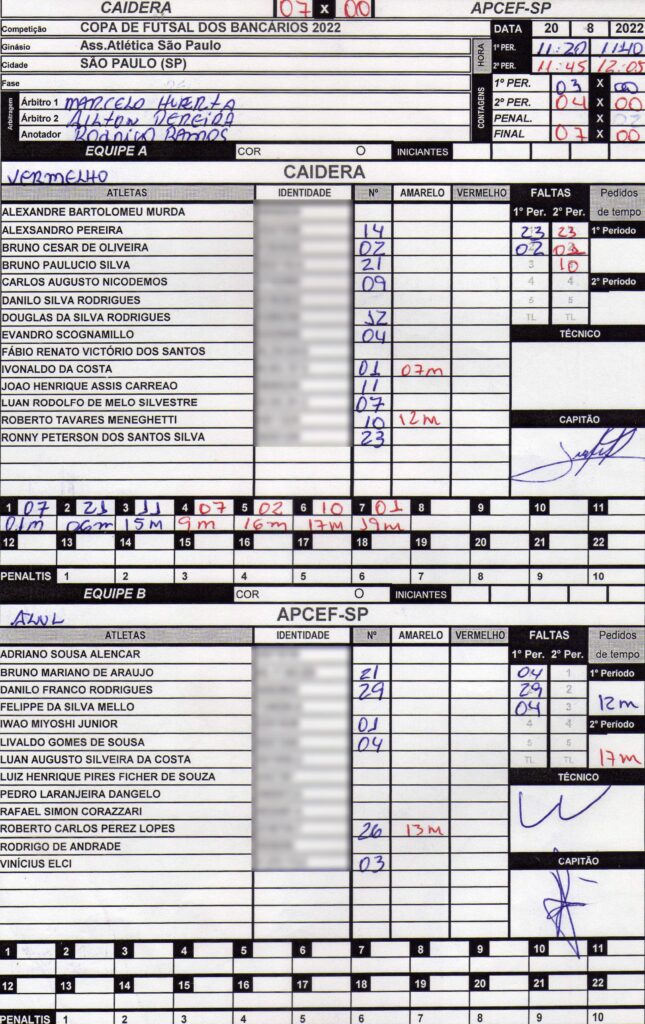 CAIDERA 07 X 00 APCEF-SP
Competição COPA DE FUTSAL DOS BANCÁRIOS 2022 DATA 20 8 2022
Ginásio Ass.Atlética São Paulo HORA 1º PER. 11:20 11:40
Cidade SÃO PAULO (SP) 2º PER. 11:45 12:05
Fase CONTAGENS 1º PER. 03 X 00
Arbitragem Árbitro 1 MARCELO HUERTA 2º PER. 04 X 00
Árbitro 2 AILTON PEREIRA PENAL. X
Anotador RODRIGO RAMOS FINAL 07 X 00
EQUIPE A COR O INICIANTES
VERMELHO CAIDERA
ATLETAS IDENTIDADE Nº AMARELO VERMELHO FALTAS Pedidos
1º Per. 2º Per. de tempo
ALEXANDRE BARTOLOMEU MURDA
ALEXSANDRO PEREIRA 14 23 23 1º Periodo
BRUNO CESAR DE OLIVEIRA 02 02
BRUNO PAULUCIO SILVA 21 3 10
CARLOS AUGUSTO NICODEMOS 09 4 4 2º Periodo
DANILO SILVA RODRIGUES 5 5
DOUGLAS DA SILVA RODRIGUES 12 TL TL
EVANDRO SCOGNAMILLO 04 TÉCNICO
FÁBIO RENATO VICTÓRIO DOS SANTOS
IVONALDO DA COSTA 01 07m
JOAO HENRIQUE ASSIS CARREAO 11
LUAN RODOLFO DE MELO SILVESTRE 07
ROBERTO TAVARES MENEGHETTI 10 12m CAPITÃO
RONNY PETERSON DOS SANTOS SILVA 23
1 07 2 21 3 11 4 07 5 02 6 10 7 01 8 9 10 11
01m 06m 15m 9m 16m 17m 19m
12 13 14 15 16 17 18 19 20 21 22
PENALTIS 1 2 3 4 5 6 7 8 9 10
EQUIPE B COR O INICIANTES
AZUL APCEF-SP
ATLETAS IDENTIDADE Nº AMARELO VERMELHO FALTAS Pedidos
1º Per. 2º Per. de tempo
ADRIANO SOUSA ALENCAR
BRUNO MARIANO DE ARAUJO 21 04 1 1º Periodo
DANILO FRANCO RODRIGUES 29 29 2 12m
FELIPPE DA SILVA MELLO 04 3
IWAO MIYOSHI JUNIOR 01 4 4 2º Periodo
LIVALDO GOMES DE SOUSA 04 5 5
LUAN AUGUSTO SILVEIRA DA COSTA TL TL 17m
LUIZ HENRIQUE PIRES FICHER DE SOUZA TÉCNICO
PEDRO LARANJEIRA DANGELO
RAFAEL SIMON CORAZZARI
ROBERTO CARLOS PEREZ LOPES 26 13m
RODRIGO DE ANDRADE
VINÍCIUS ELCI 03 CAPITÃO
1 2 3 4 5 6 7 8 9 10 11
12 13 14 15 16 17 18 19 20 21 22
PENALTIS 1 2 3 4 5 6 7 8 9 10